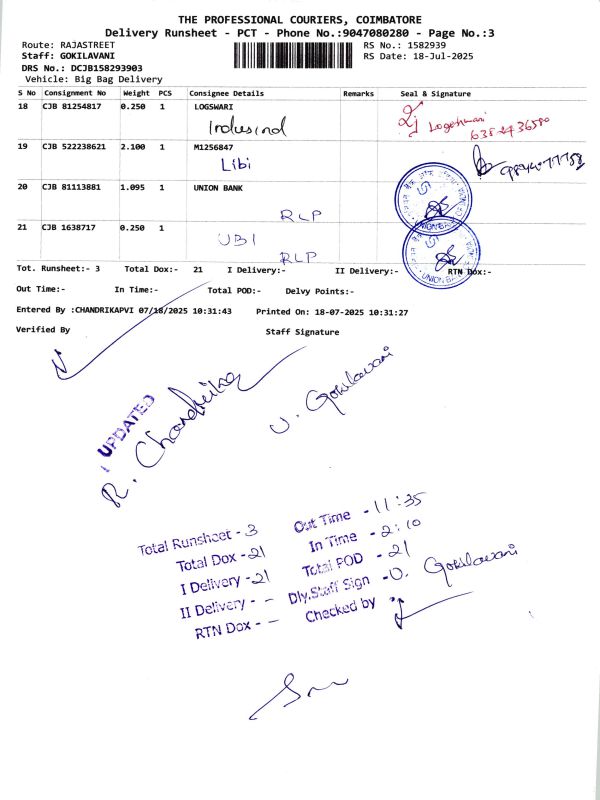 THE PROFESSIONAL COURIERS, COIMBATORE
Delivery Runsheet - PCT - Phone No.:9047080280 - Page No.:3
Route: RAJASTREET RS No.: 1582939
Staff: GOKILAVANI RS Date: 18-Jul-2025
DRS No.: DCJB158293903
Vehicle: Big Bag Delivery
S No Consignment No Weight PCS Consignee Details Remarks Seal & Signature
18 CJB 81254817 0.250 1 LOGSWARI
Indusind
Logeshwari
19 CJB 522238621 2.100 1 M1256847
Libi
20 CJB 81113881 1.095 1 UNION BANK
RLP
21 CJB 1638717 0.250 1
UBI
RLP
Tot. Runsheet:- 3 Total Dox:- 21 I Delivery:- II Delivery:- RTN Dox:-
Out Time:- In Time:- Total POD:- Delvy Points:-
Entered By :CHANDRIKAPVI 07/18/2025 10:31:43 Printed On: 18-07-2025 10:31:27
Verified By Staff Signature
UPDATED
R. Chandrika
U. Gokilavani
Total Runsheet - 3 Out Time - 11:35
Total Dox - 21 In Time - 2:10
I Delivery - 21 Total POD - 21
II Delivery - - Dly.Staff Sign - U. Gokilavani
RTN Dox - - Checked by